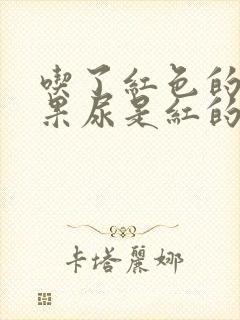 喫了紅色的
果尿是紅的
卡塔麗娜